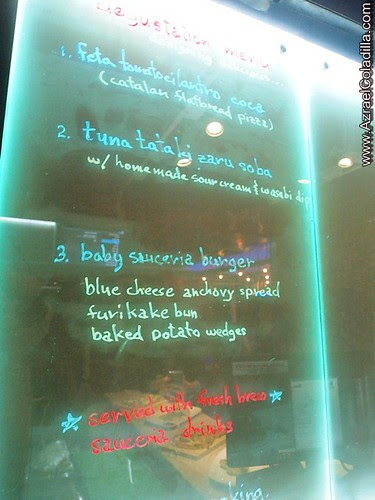 degustation menu
1. feta tomato cilantro coca
(catalan flatbread pizza)
2. tuna tataki zaru soba
w/ homemade sour cream & wasabi dip
3. baby sauceria burger
blue cheese anchovy spread
furikake bun
baked potato wedges
☆ served with fresh brew ☆
drinks
www.AzraelColadilla.com